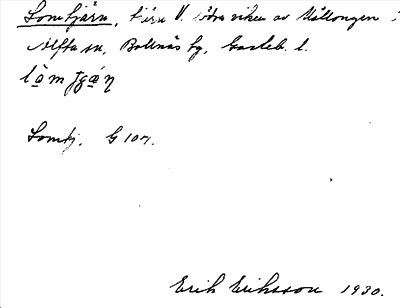 Lomtjärn, tjärn V. södra viken av Mållongen i
Alfta sn, Bollnäs tg, Gävleb. l.
Lomtj. G 104.
Erik Eriksson 1930.